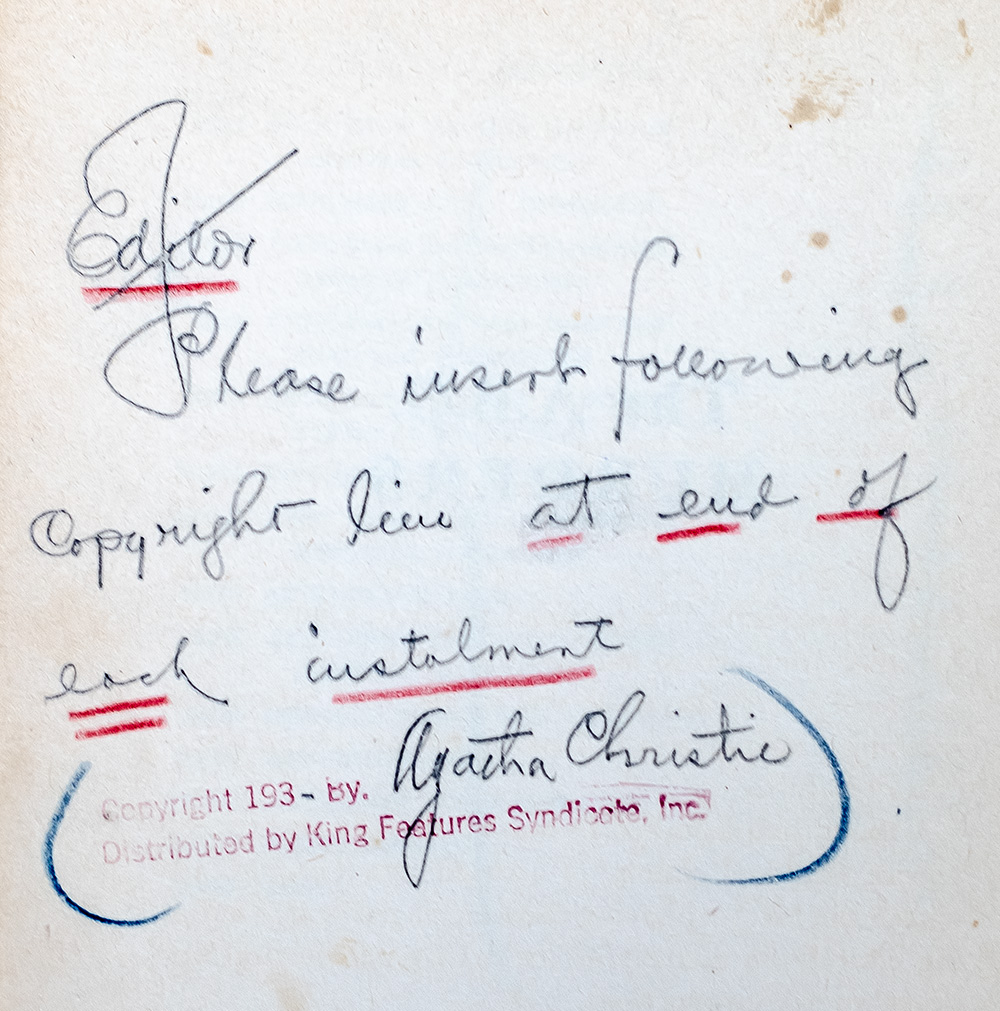 Editor
Please insert following
Copyright line at end of
each instalment
Copyright 193- by. Agatha Christie
Distributed by King Features Syndicate, Inc.